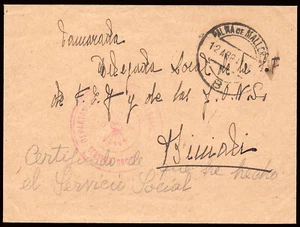 Camarada
Delegada Local de
de F.E.T y de las J.O.N.S.
Biniali
Certificado de que he hecho
el Servicio Social
PALMA DE MALLORCA
12 ABR